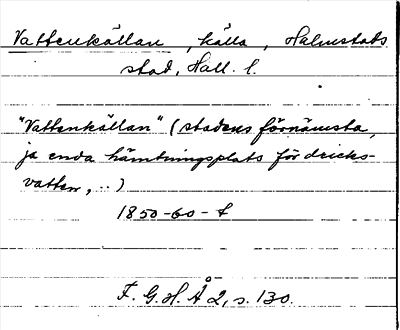 Vattenkällan, källa, Halmstads
stad, Hall. l.
"Vattenkällan" (stadens förnämsta,
ja enda hämtningsplats för dricks-
vatten, ..)
1850-60-t
F. G. H. Å 2, s. 130.